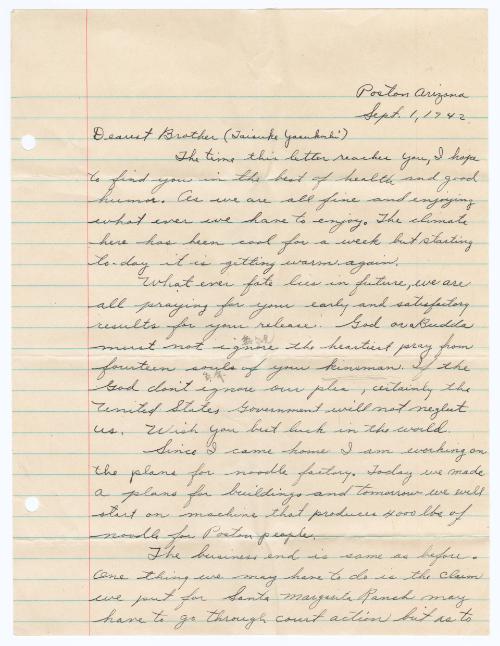 Poston Arizona
Sept. 1, 1942.
Dearest Brother (Taisuke Yasukochi)
The time this letter reaches you, I hope
to find you in the best of health and good
humor. As we are all fine and enjoying
what ever we have to enjoy. The climate
here has been cool for a week but starting
to-day it is getting warm again.
What ever fate lies in future, we are
all praying for your early and satisfactory
results for your release. God or Budda
must not ignore the heartiest pray from
fourteen souls of your kinsman. If the
God don't ignore our plea, certainly the
United States Government will not neglect
us. Wish you best luck in the world.
Since I came home I am working on
the plans for noodle factory. Today we made
a plans for buildings and tomorrow we will
start on machine that produces 4000 lbs of
noodle for Poston people.
The business end is same as before.
One thing we may have to do is the claim
we put for Santa Margarita Ranch may
have to go through court action but as to